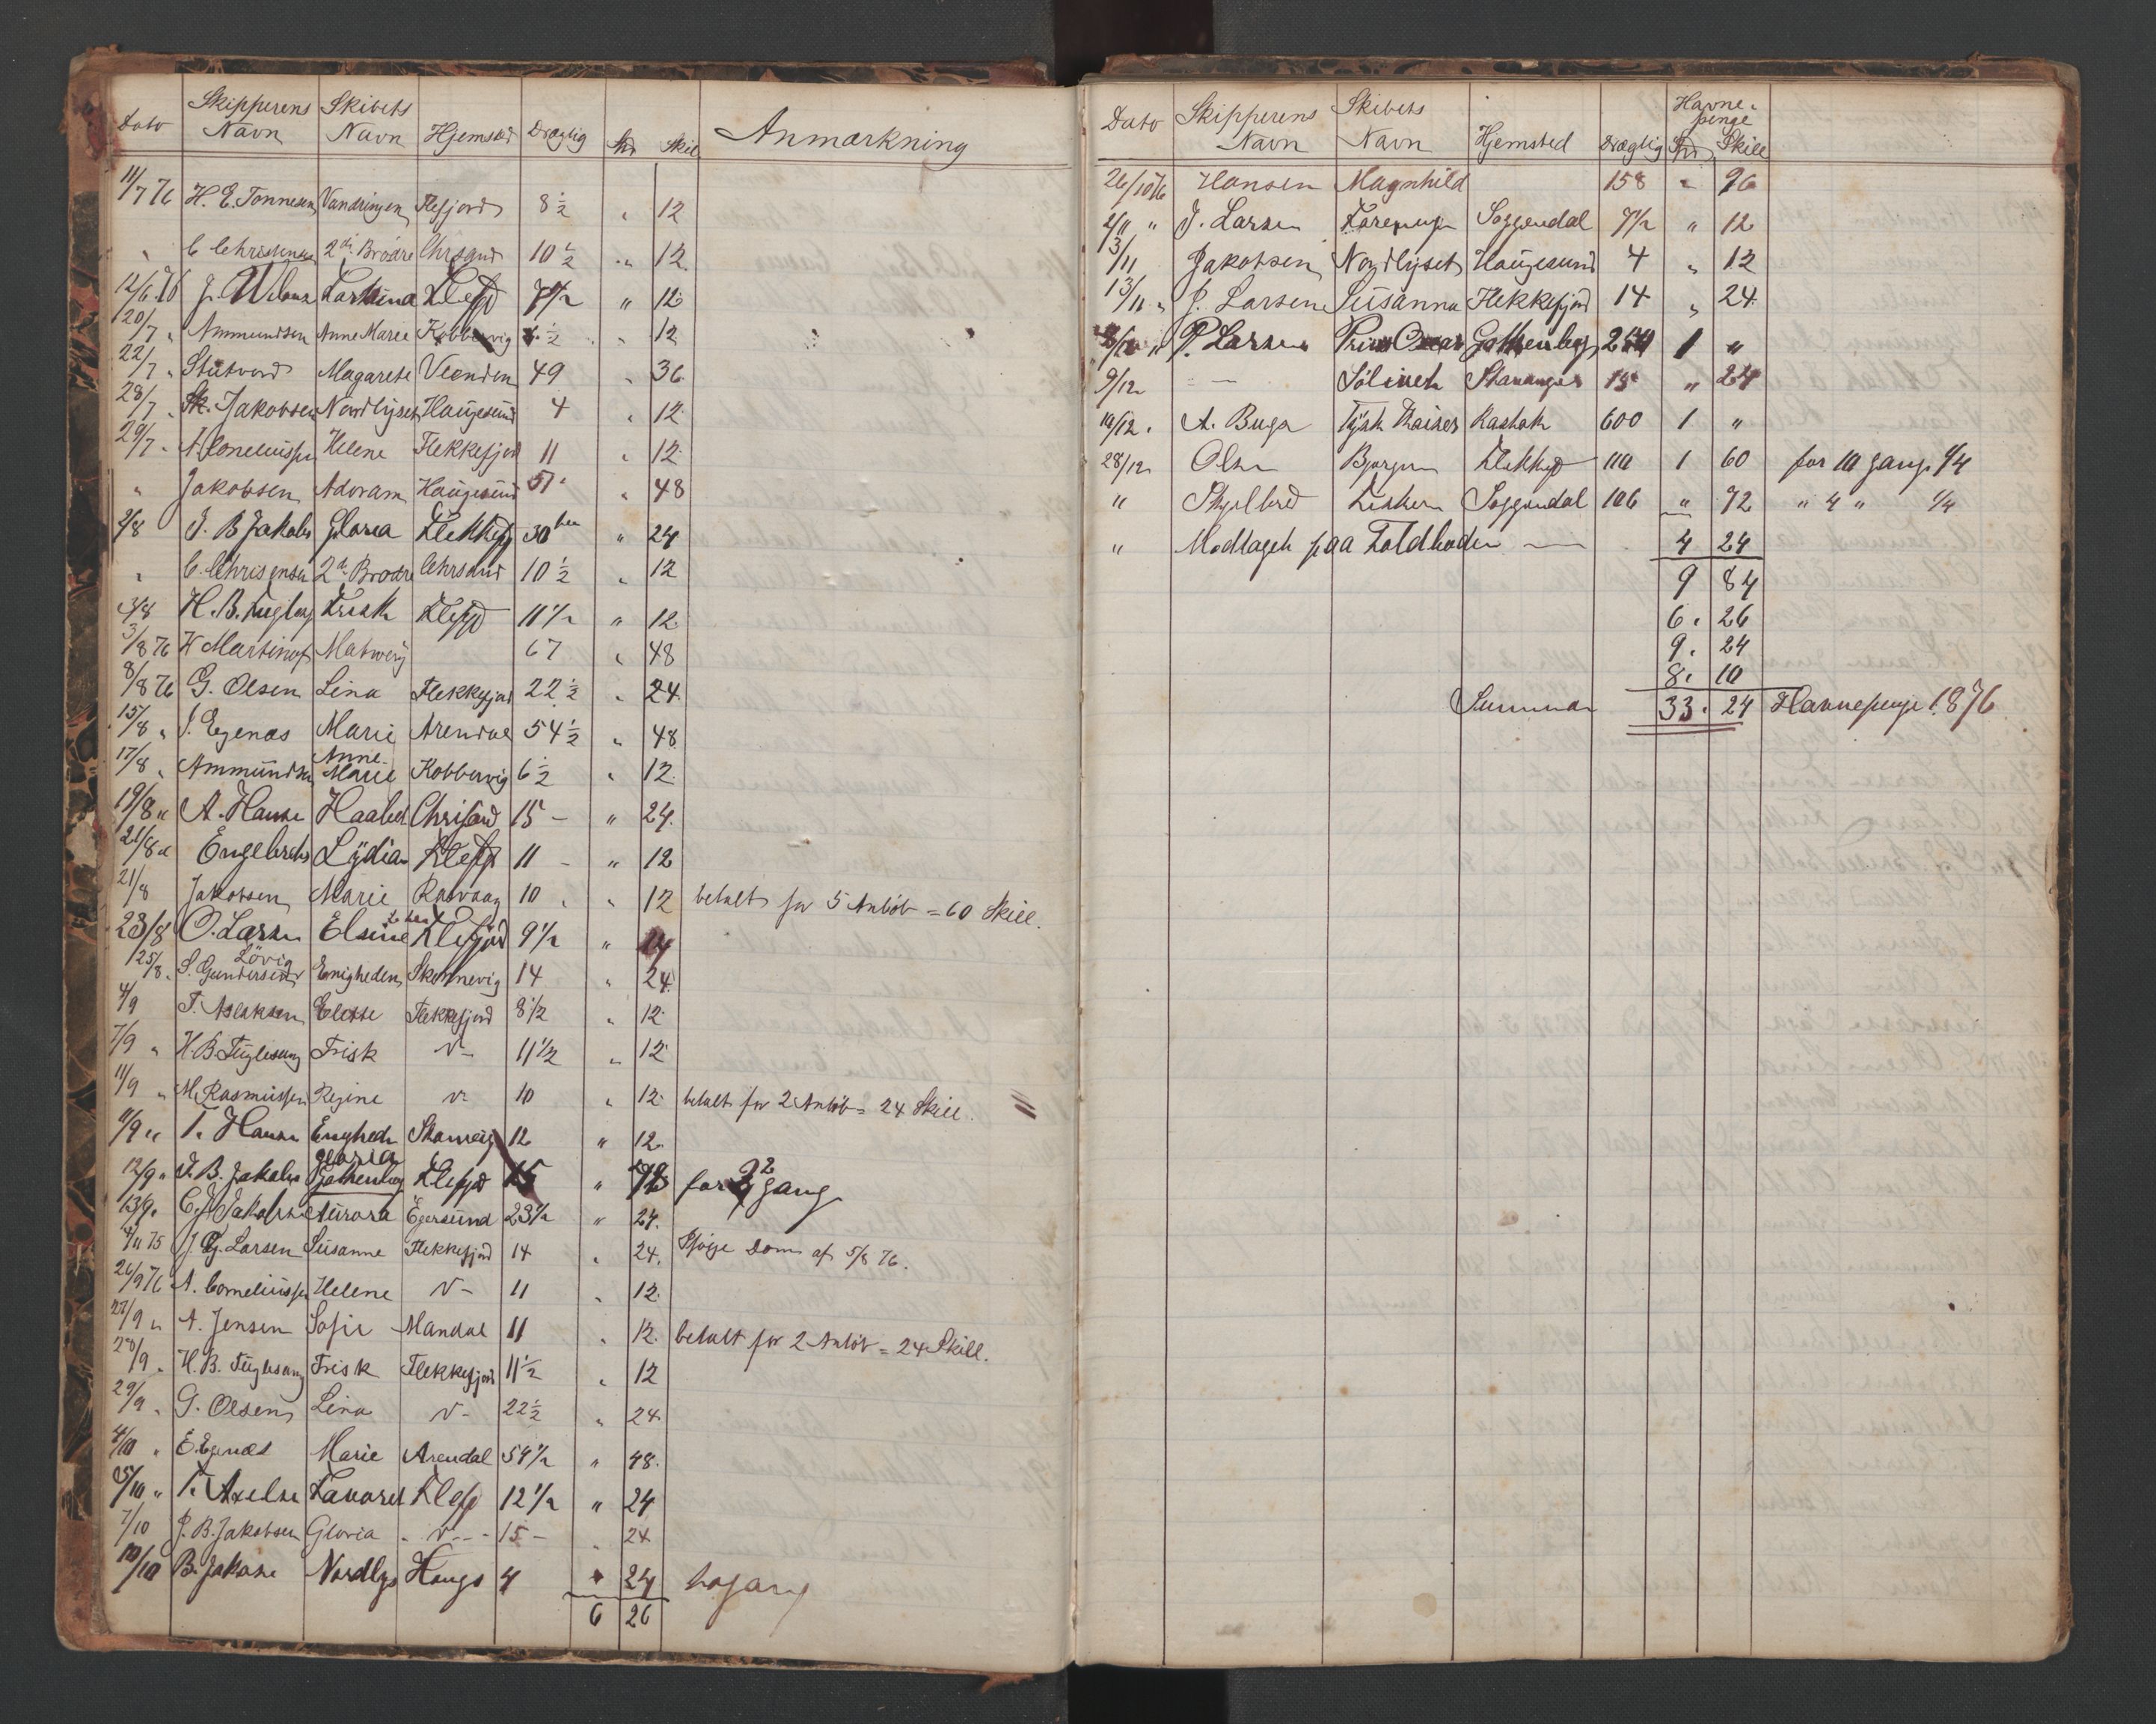 Dato Skipperens Navn Skibets Navn Hjemsted Drægtig Spd Skil Anmærkning
11/7 76 H. E. Tonnesen Vandringen Flefjord 8 1/2 " 12
" C Christensen 2de Brodre Chrsand 10 1/2 " 12
12/6 76 J. 7 1/2 " 12
20/7 " Ammundsen Anne Marie Kobbervig 6 1/2 " 12
22/7 " Stutvord Magarete Veenden 49 " 36
28/7 " Sk. Jakobsen Nordlyset Haugesund 4 " 12
29/7 " A Corneliussen Helene Flekkefjord 11 " 12
" Jakobsen Adoram Haugesund 51 " 48
2/8 J. B Jakobs Gloria Flekkefj 30 " 24
" C. Chrisensen 2de Brodre Chrsand 10 1/2 " 12
3/8 H. B. Fuglesang Frisk Flefjd 11 1/2 " 12
3/8 76 W Martinof Matweij 67 " 48
8/8 76 G. Olsen Lina Flekkefjord 22 1/2 " 24
15/8 " J. Egenæs Marie Arendal 54 1/2 " 48
17/8 " Ammundsen Anne Marie Kobbervig 6 1/2 " 12
19/8 " A. Hansen Haabet Chrisand 15 - " 24
21/8 " Engebrets Lydia Flefj 11 - " 12
21/8 Jakobsen Marie Rasvaag 10 " " 12 betalt for 5 Anløb = 60 Skill.
23/8 O. Larsen Elsine Flefjord 9 1/2 " 14
25/8 " S. Gundersen Lövig Enigheden Skonnevig 14 " 24
4/9 T. Aslaksen Elette Flekkefjord 8 1/2 " 12
7/9 " H. B. Fuglesang Frisk v- 11 1/2 " 12
11/9 " M. Rasmussen Regine v- 10 " 12 betalt for 2 Anløb = 24 Skill.
11/9 " T. Hansen Enighed 12 " 12
12/9 " J. B. Jakobs Gloria Flefjd 15 " for 2 gang
13/9 " Jakobsen Aurora Egersund 23 1/2 " 24
4/11 75 J. G. Larsen Susanne Flekkefjord 14 " 24 Ifølge Dom af 5/8 76.
26/9 76 A. Corneliussen Helene v- 11 " 12
27/9 " A. Jensen Sofie Mandal 11 " 12 betalt for 2 Anløb = 24 Skill.
28/9 " H. B. Fuglesang Frisk Flekkefjord 11 1/2 " 12
29/9 " G. Olsen Lina v- 22 1/2 " 24
4/10 " E. Egenæs Marie Arendal 54 1/2 " 48
5/10 " T. Axelsen Favoret Flefj 12 1/2 " 24
7/10 J. B. Jakobsen Gloria - v - - 15 - " 24
10/10 B. Jakobsen Nordlys Haugs 4 " 24 to gang
6 26
Dato Skipperens Navn Skibets Navn Hjemsted Drægtig Havnepenge Spd Skill
26/10 76 Hansen Magnhild 158 " 96
2/11 " J. Larsen Soggendal 7 1/2 " 12
3/11 Jakobsen Nordlyset Haugesund 4 " 12
13/11 " J. Larsen Susanna Flekkefjord 14 " 24
P. Larsen Prins Oscar Gothenborg 1 "
9/12 - Stavanger 15 " 24
19/12 " A. Buga Tysk Kaiser 600 1 "
28/12 Olsen Flekkefj 110 1 60 for 10 gang 1/4
" Fiskeren Soggendal 106 " 72 " 4 " 1/4
" Modtaget paa Toldboden — 4 24
9 84
6. 26
9. 24
8. 10
Summa 33. 24 Havnepenge 1876